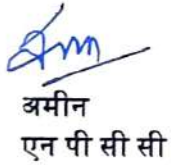 अमीन
एन पी सी सी